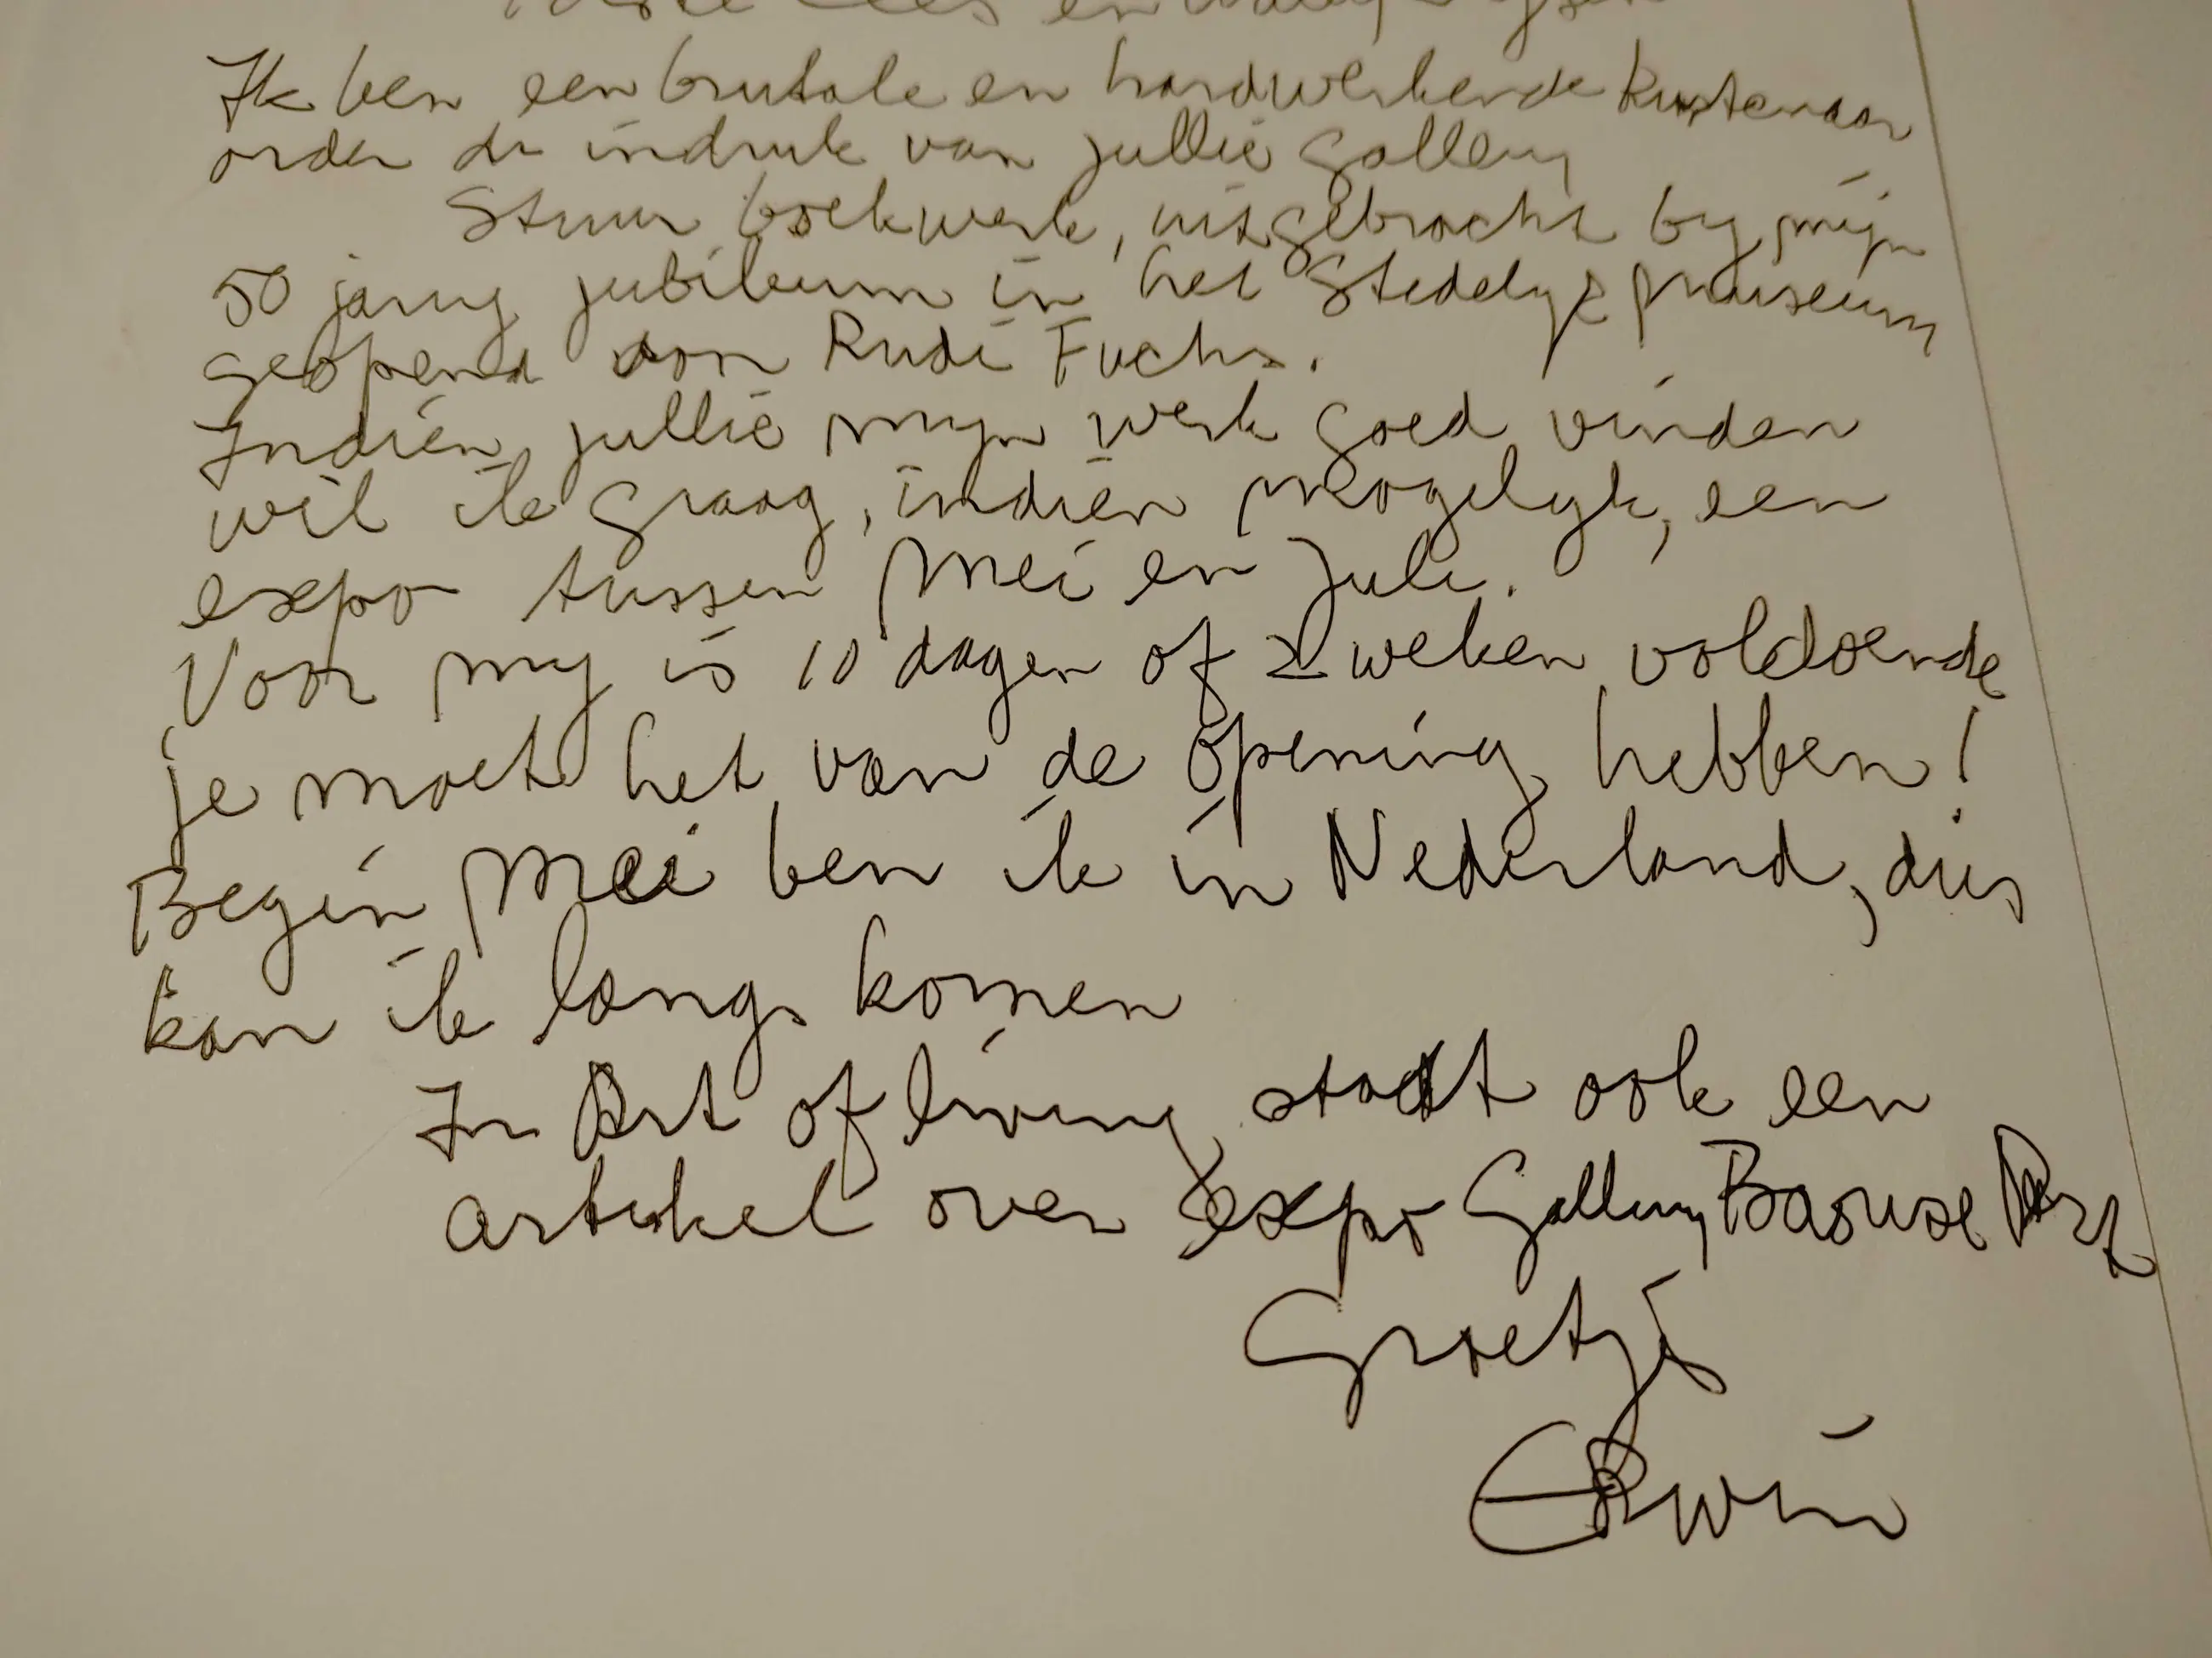 Ik ben een brutale en hardwerkende kunstenaar
onder de indruk van jullie gallery
Stuur boekwerk, uitgebracht by mijn
50 jarig jubileum in het Stedelyk Museum
geopend door Rudi Fuchs.
Indien jullie myn werk goed vinden
wil ik graag, indien mogelyk, een
expo tussen Mei en Juli.
Voor my is 10 dagen of 2 weken voldoende
je moet het van de opening hebben!
Begin Mei ben ik in Nederland, dus
kan ik langs komen
In Art of living staat ook een
artikel over expo Gallery Art
Groetjes
Erwin